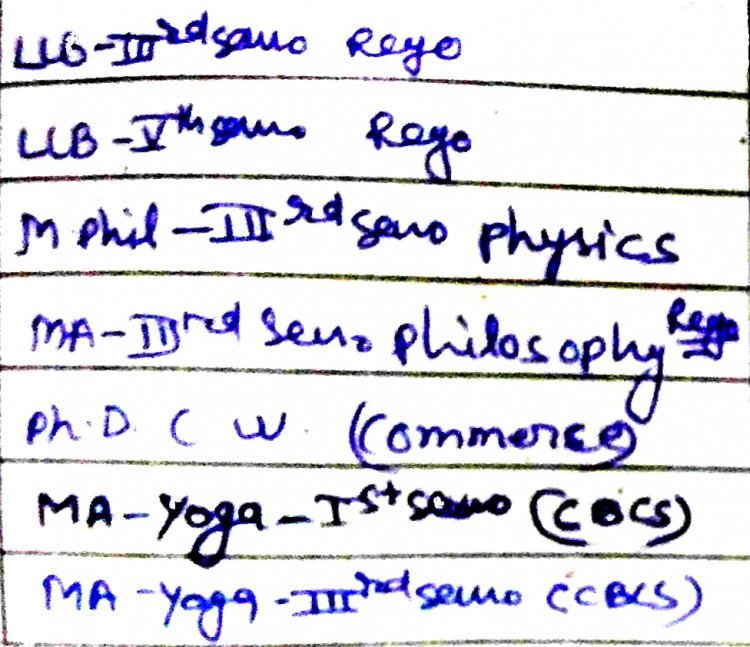 LLB-III rd sem Rego
LLB-V th sem Rego
M Phil-III rd sem physics
MA-III rd sem philosophy Rego
Ph.D. C W. (Commerce)
MA-Yoga-I st sem (CBCS)
MA-Yoga-III rd sem (CBCS)